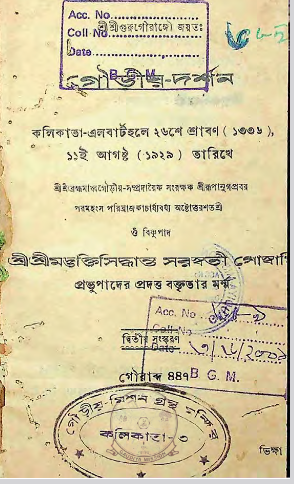 Acc. No.
শ্রীশ্রীগুরুগৌরাঙ্গৌ জয়তঃ
Coll No.
Date
B. G. M.
গৌড়ীয়-দর্শন
কলিকাতা-এলবার্টহলে ২৬শে শ্রাবণ ( ১৩৩৬ ),
১১ই আগষ্ট ( ১৯২৯ ) তারিখে
শ্রীশ্রীব্রহ্মমাধ্বগৌড়ীয়-সম্প্রদায়ৈক সংরক্ষক শ্রীরূপানুগপ্রবর
পরমহংস পরিব্রাজকাচার্য্যবর্য্য অষ্টোত্তরশতশ্রী
ওঁ বিষ্ণুপাদ
শ্রীশ্রীমদ্ভক্তিসিদ্ধান্ত সরস্বতী গোস্বামি
প্রভুপাদের প্রদত্ত বক্তৃতার মর্ম্ম
Acc. No.
Call No
দ্বিতীয় সংস্করণ
Date
গৌরাব্দ ৪৪৭
B. G. M.
গৌড়ীয় মিশন গ্রন্থ মন্দির
কলিকাতা-৩
ভিক্ষা